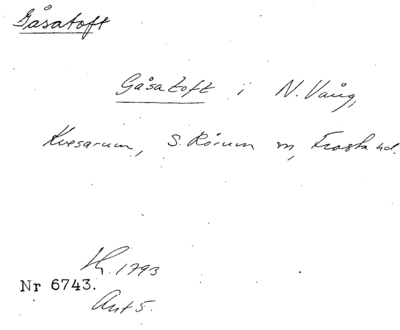 Gåsatoft
Gåsatoft i N. Vång,
Kvesarum, S. Rörum sn, Frosta hd.
1793
Nr 6743.
Akt 5.